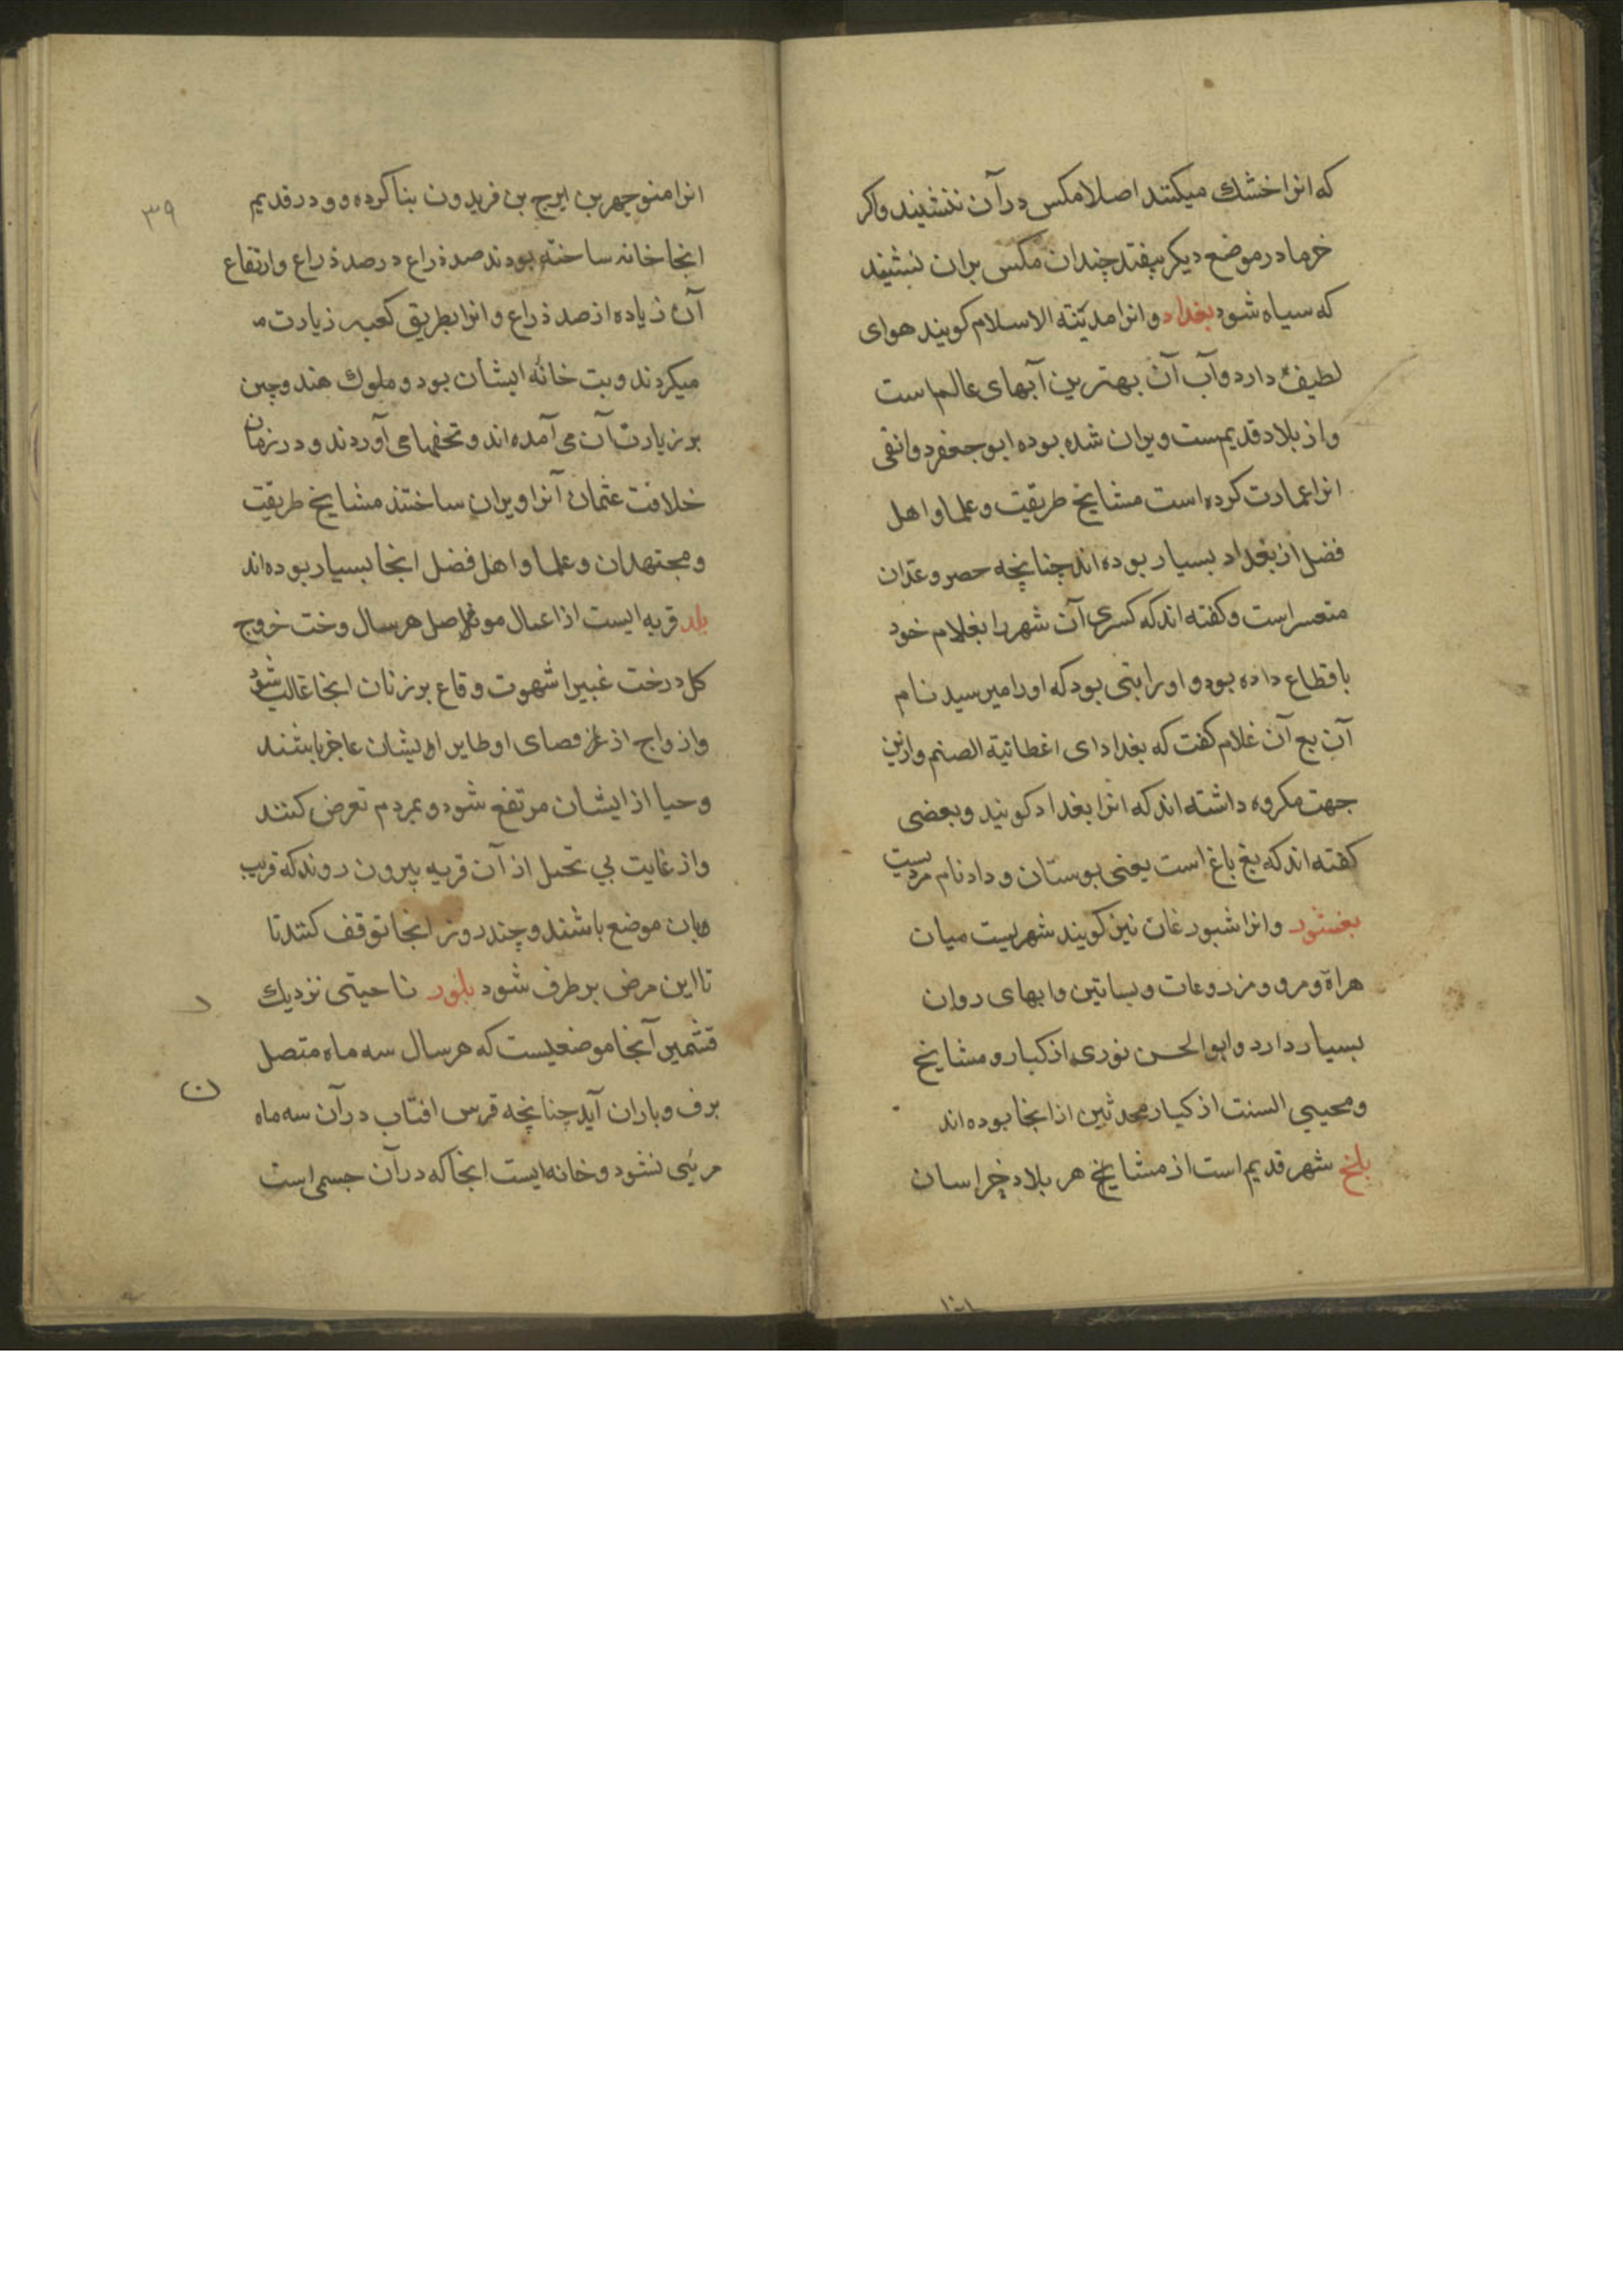 که انرا خشك میکنند اصلا مکس در آن ننشیند واکر
خرما در موضع دیکر بیفتد چندان مکس بران نشیند
که سیاه شود بغداد و انرا مدینته الاسلام کویند هوای
لطیف دارد وآب آن بهترین آبهای عالم است
واز بلاد قدیمست ویران شده بوده ابو جعفر دوانقی
انرا عمارت کرده است مشایخ طریقت وعلما و اهل
فضل از بغداد بسیار بوده اند چنانچه حصر وعدّان
متعسر است و کفته اند که کسری آن شهر را بغلام خود
باقطاع داده بود و او را بتی بود که او را میپرسید نام
آن بع آن غلام کفت که بغداد ای اعطانیة الصنم وازین
جهت مکروه داشته اند که انرا بغداد کویند وبعضی
کفته اند که بغ باغ است یعنی بوستان و داد نام مردیست
بغشور وانرا شبورغان نیز کویند شهریست میان
هراة ومرو و مزروعات وبساتین وابهای روان
بسیار دارد وابو الحسن نوری از کبار و مشایخ
ومحیی السنت از کبار محدثین از انجا بوده اند
بلخ شهر قدیم است از مشایخ هر بلاد خراسان
۳۹
انرا منوچهر بن ایرج بن فریدون بنا کرده و ودر قدیم
انجا خانه ساخته بودند صد ذراع در صد ذراع وارتفاع
آن زیاده از صد ذراع و انرا بطریق کعبه زیارت مـ
میکردند وبت خانه ایشان بود و ملوك هند وچین
بزیارت آن می آمده اند و تحفها می آوردند ودر زمان
خلافت عثمان آنرا ویران ساختند مشایخ طریقت
ومجتهدان وعلما واهل فضل انجا بسیار بوده اند
بلد قریه ایست از اعمال موصل هر سال وخت خروج
کل درخت غبیرا شهوت وقاع بر زنان انجا غالب شود
وازواج از قصای اوطایر ایشان عاجز باشند
وحیا از ایشان مرتفع شود و بمردم تعرض کنند
واز غایت بی تحمل از آن قریه بیرون روند که قریب
بان موضع باشند وچند روز انجا توقف کنند تا
تا این مرض برطرف شود بلور ناحیتی نزدیك
قشمیر آنجا موضعیست که هر سال سه ماه متصل
برف وباران آید چنانچه قرس افتاب در آن سه ماه
مریٔی نشود وخانه ایست انجا که در آن جسمی است